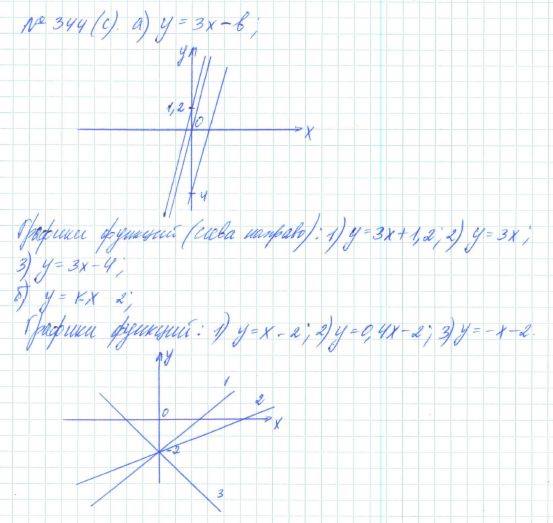 № 344 (с). а) y = 3x - в;
y
1,2
0
x
4
Графики функций (слева направо): 1) y = 3x + 1,2; 2) y = 3x;
3) y = 3x - 4;
б) y = кx 2;
Графики функций: 1) y = x - 2; 2) y = 0,4x - 2; 3) y = -x - 2.
y
1
2
0
x
-2
3